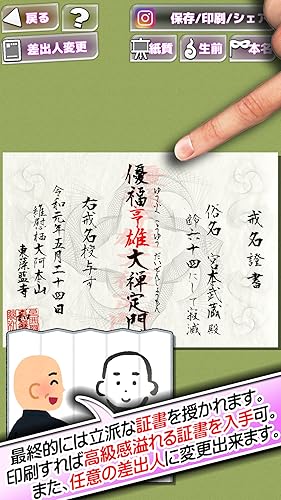 戻る
?
保存/印刷/シェア
差出人変更
紙質
生前
本名
戒名證書
俗名 宮本武蔵殿
齢六十四にして
優福亨雄大禅定門
右戒名授与す
令和元年五月二十四日
大阿本山
最終的には立派な証書を授かれます。
印刷すれば高級感溢れる証書を入手可。
また、任意の差出人に変更出来ます。